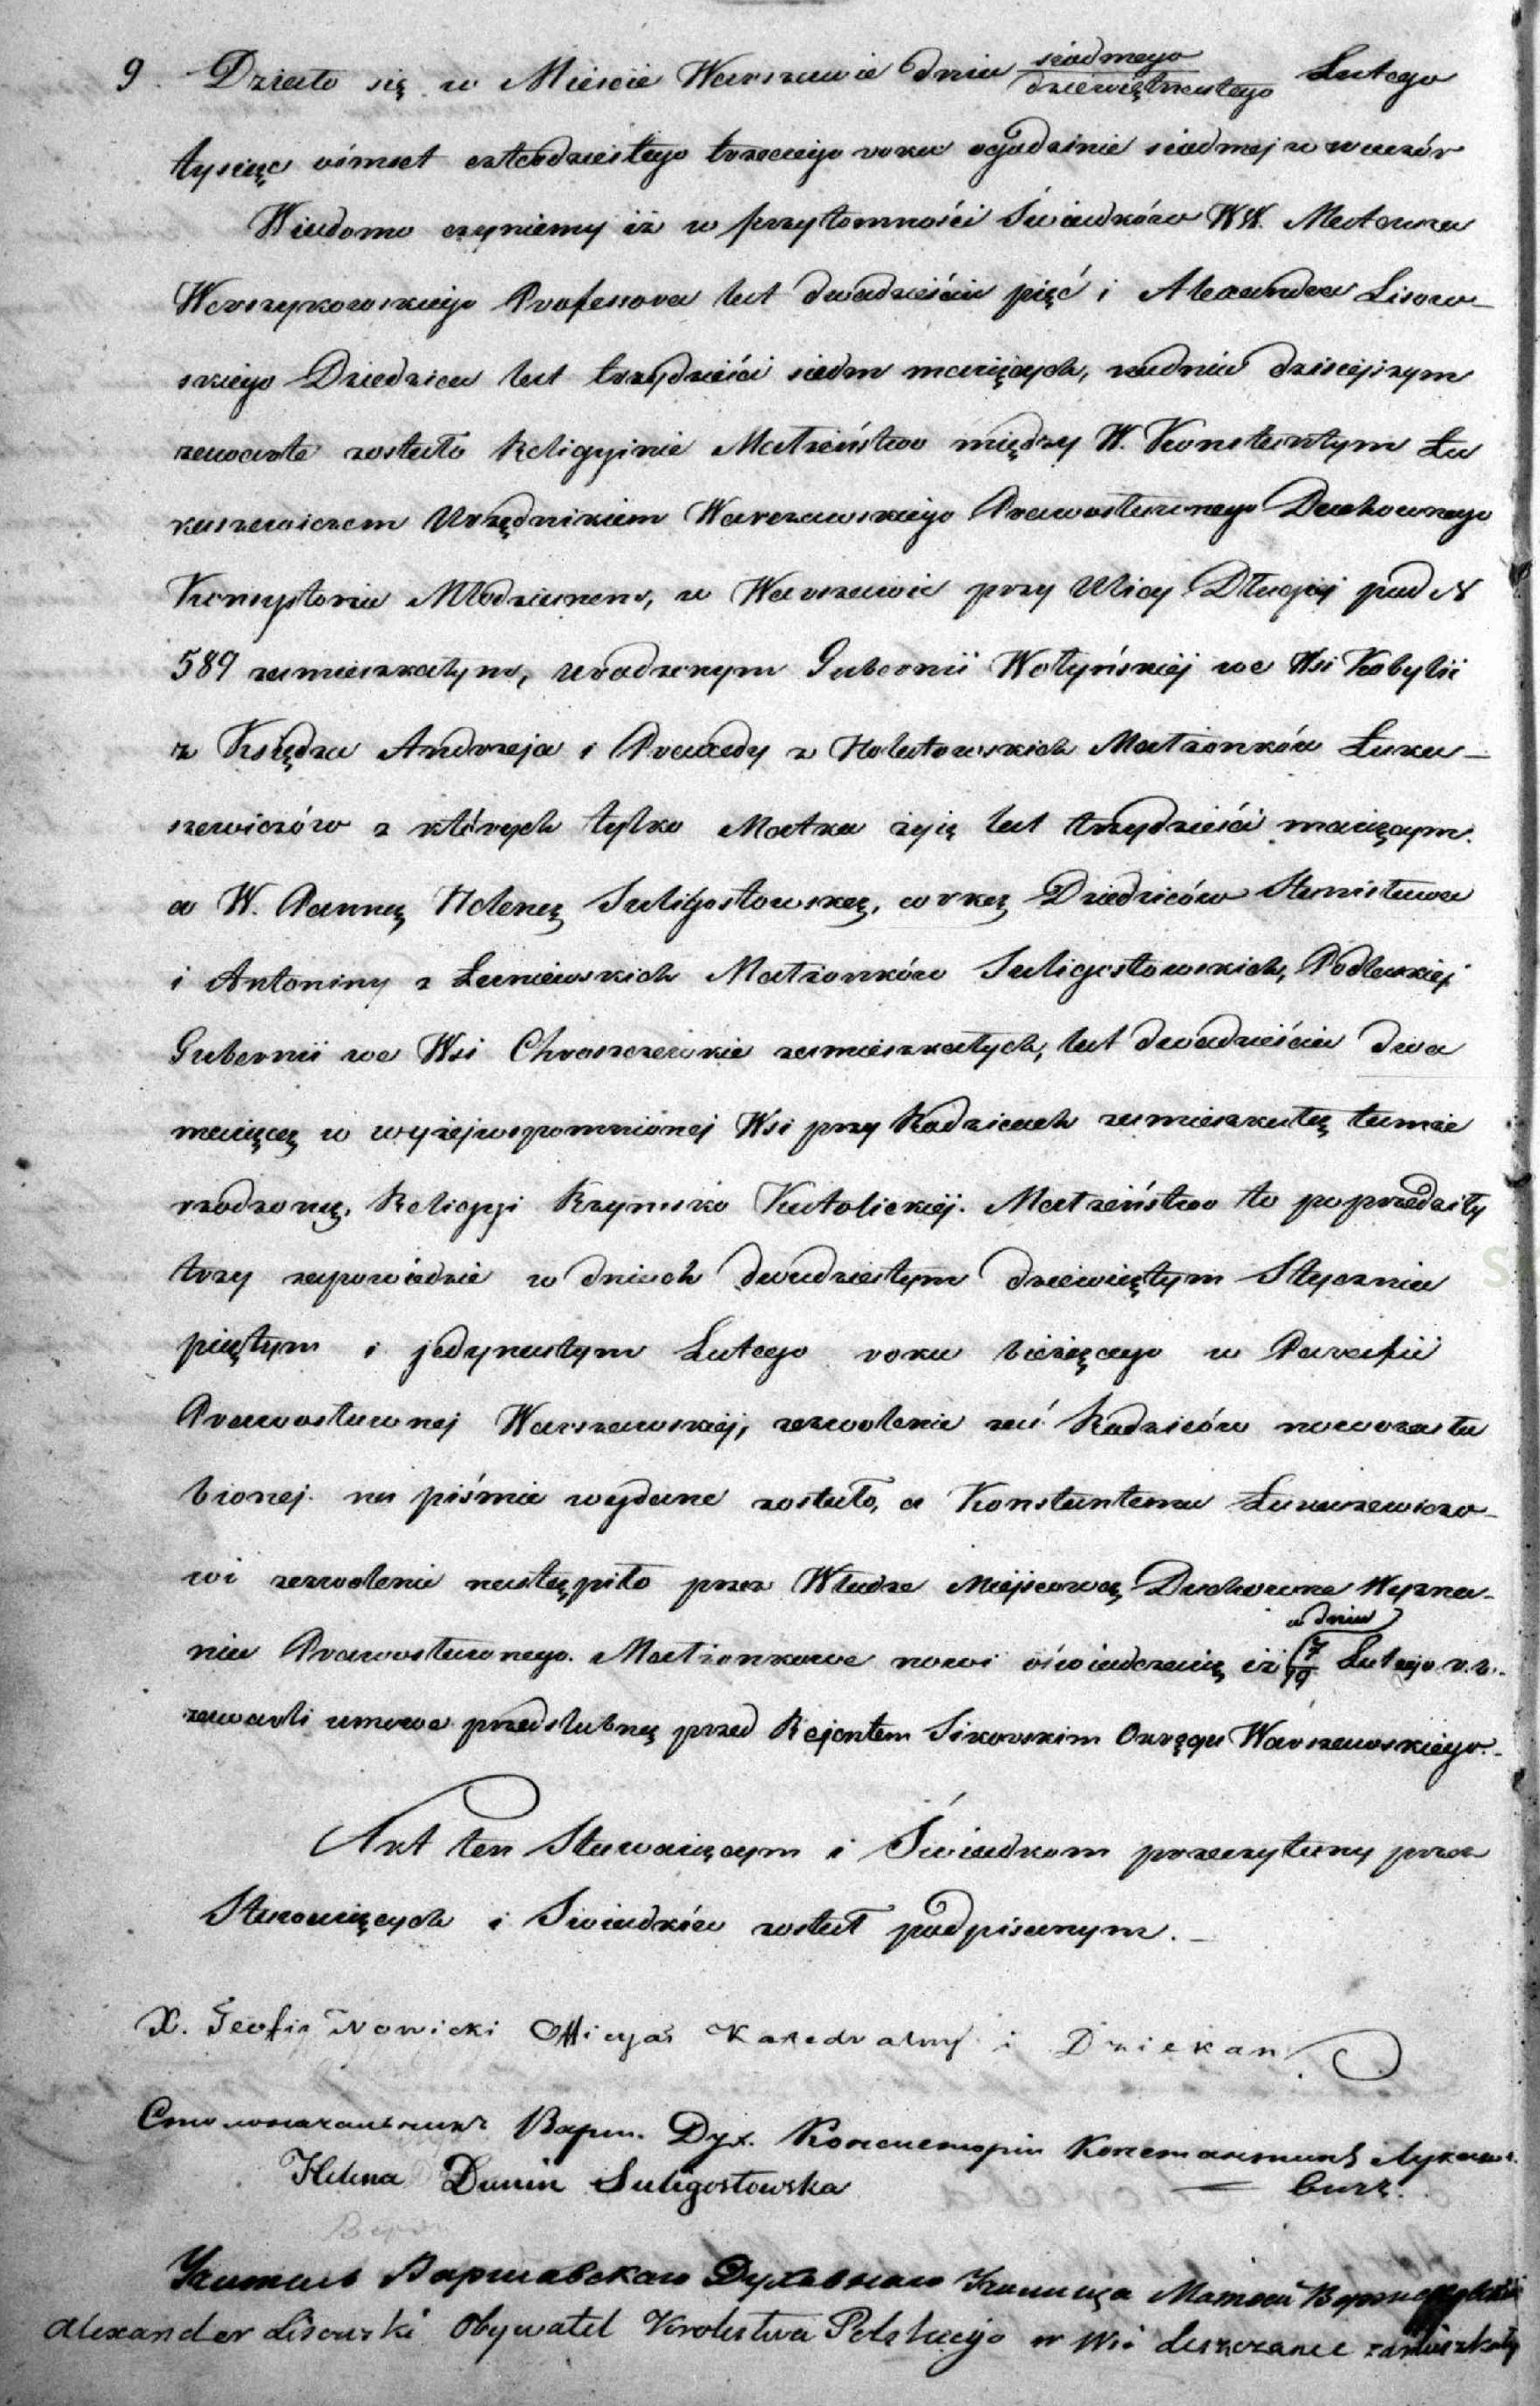 9. Działo się w Mieście Warszawie dnia siódmego/dziewiętnastego Lutego
tysiąc ośmset cztérdziestego trzeciego roku o godzinie siódmej w wieczór
Wiadomo czyniemy iż w przytomności Świadków WW. Mateusza
Werszykowskiego Professora lat dwadzieścia pięć i Alexandra Lisow-
skiego Dziedzica lat trzydzieści siedm mających, na dniu dzisiejszym
zawarte zostało Religijnie Małżeństwo między W. Konstantym Łu
kaszewiczem Urzędnikiem Warszawskiego Prawosławnego Duchownego
Konsystorza Młodzianem, w Warszawie przy Ulicy Długiej pod N
589 zamieszkałym, urodzonym Gubernii Wołyńskiéj we Wsi Kobylii
z Księdza Andrzeja i Praxedy z Hołutowskich Małżonków Łuka-
szewiczów z których tylko Matka żyje lat trzydzieści mającym.
a W. Panną Heleną Suligostowską, córką Dziedziców Stanisława
i Antoniny z Łuniewskich Małżonków Suligostowskich, Podlaskiéj
Gubernii we Wsi Chroszczewkie zamieszkałych, lat dwadzieścia dwa
mającą w wyżejwspomnionéj Wsi przy Rodzicach zamieszkałą tamże
rodzoną, Religii Rzymsko Katolickiéj. Małżeństwo to poprzedziły
trzy zapowiedzie w dniach dwudziestym dziewiętym Stycznia
piątym i jedynastym Lutego roku bieżącego w Parafii
Prawosławnej Warszawskiéj, zezwolenie zaś Rodziców nowozaślu
bionej na piśmie wydane zostało, a Konstantemu Łukaszewiczo-
wi zezwolenie nastąpiło przez Władze Miejscową Duchowne Wyzna-
nia Prawosławnego. Małżonkowie nowi oświadczają iż w dniu 7/19 Lutego r.b.
zawarli umowe przedślubną przed Rejentem Sikorskim Okręgu Warszawskiego.
Akt ten Stawającym i Świadkom przeczytany przez
Stawających i Świadków został podpisanym.
X. Teofil Nowicki Officyał Katedralny i Dziekan
Столоначальникъ Варш. Дух. Консисторіи Константинъ Лукаше-
вичъ.
Helena Dunin Suligostowska
Учитель Варшавскаго Духовнаго Училища Матвей
Alexander Lisowski Obywatel Krolestwa Polskiego w Wsi Leszczance zamieszkały